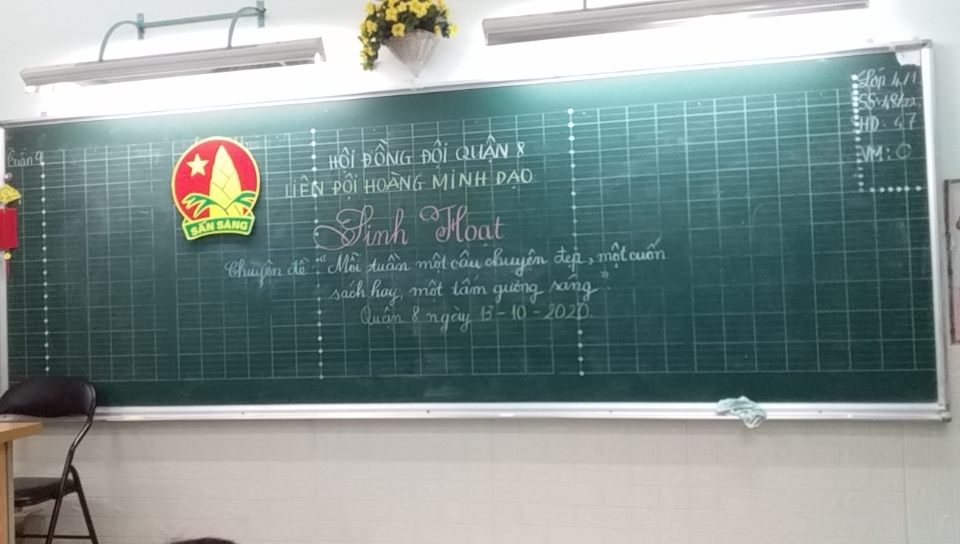 HỘI ĐỒNG ĐỘI QUẬN 8
LIÊN ĐỘI HOÀNG MINH ĐẠO
Sinh Hoạt
Chuyên đề: "Mỗi tuần một câu chuyện đẹp, một cuốn
sách hay, một tấm gương sáng".
Quận 8 ngày 13-10-2020.
SẴN SÀNG
Lớp 4/1
SS: 48/22
HD: 47
VM: 0